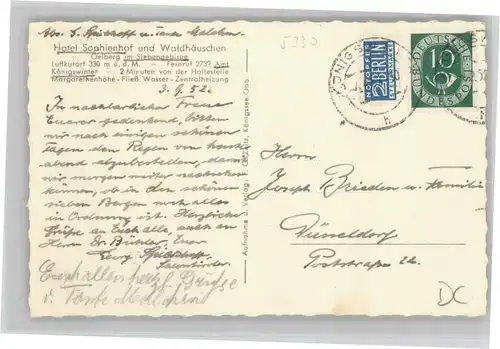 Hotel Sophienhof und Waldhäuschen
Oelberg im Siebengebirge
Luftkurort 330 m ü. d. M. — Fernruf 2737 Amt
Königswinter — 2 Minuten von der Haltestelle
Margarethenhöhe - Fließ. Wasser - Zentralheizung
3.9.52.
In nachbarlicher Treue
Eurer gedenkend, bitten
wir nach einigen schönen
Tagen den Regen von heute
abend abzubestellen, damit
wir morgen weiter
können, ob in den schönen
sieben Bergen noch alles
in Ordnung ist. Herzliche
Grüße an Euch alle, auch an
Herrn Dr. Euer
Georg
Euch allen herzl. Grüße
v. Tante
Aufnahme u. Verlag:
5330
NOTOPFER
2 BERLIN
STEUERMARKE
DEUTSCHE
BUNDESPOST
10
Herrn
Joseph Brieden u. Familie
Düsseldorf
Poststrasse
DC